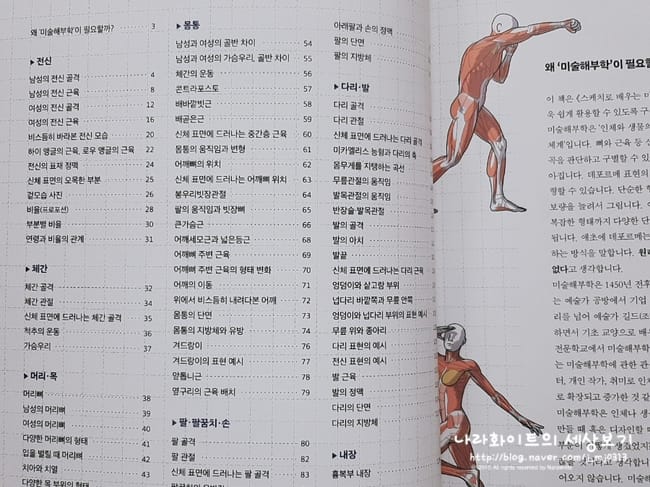 왜 '미술해부학'이 필요할까? 3
▶ 전신
남성의 전신 골격 4
남성의 전신 근육 8
여성의 전신 골격 12
여성의 전신 근육 16
비스듬히 바라본 전신 모습 20
하이 앵글의 근육, 로우 앵글의 근육 22
전신의 표재 정맥 24
신체 표면의 오목한 부분 25
겉모습 사진 26
비율(프로포션) 28
부분별 비율 30
연령과 비율의 관계 31
▶ 체간
체간 골격 32
체간 관절 34
신체 표면에 드러나는 체간 골격 35
척추의 운동 36
가슴우리 37
▶ 머리·목
머리뼈 38
남성의 머리뼈 39
여성의 머리뼈 40
다양한 머리뼈의 형태 41
입을 벌릴 때 머리뼈 42
치아와 치열 43
다양한 목 부위의 형태
▶ 몸통
남성과 여성의 골반 차이 54
남성과 여성의 가슴우리, 골반 차이 55
체간의 운동 56
콘트라포스토 57
배바깥빗근 58
배곧은근 59
신체 표면에 드러나는 중간층 근육 60
몸통의 움직임과 변형 61
어깨뼈의 위치 62
신체 표면에 드러나는 어깨뼈 위치 63
봉우리빗장관절 64
팔의 움직임과 빗장뼈 65
큰가슴근 66
어깨세모근과 넓은등근 68
어깨뼈 주변 근육 69
어깨뼈 주변 근육의 형태 변화 70
어깨의 이동 71
위에서 비스듬히 내려다본 어깨 72
몸통의 단면 74
몸통의 지방체와 유방 74
겨드랑이 76
겨드랑이의 표현 예시 77
앞톱니근 78
옆구리의 근육 배치 79
▶ 팔·팔꿈치·손
팔 골격 80
팔 관절 82
신체 표면에 드러나는 팔 골격 83
아래팔과 손의 정맥
팔의 단면
팔의 지방체
▶ 다리·발
다리 골격
다리 관절
신체 표면에 드러나는 다리 골격
미카엘리스 능형과 다리의 축
몸무게를 지탱하는 곡선
무릎관절의 움직임
발목관절의 움직임
반장슬·발목관절
발의 골격
발의 아치
발끝
신체 표면에 드러나는 다리 근육
엉덩이와 샅고랑 부위
넙다리 바깥쪽과 무릎 안쪽
엉덩이와 넙다리 부위의 표현 예시
무릎 위와 종아리
다리 표현의 예시
전신 표현의 예시
발 근육
발의 정맥
다리의 단면
다리의 지방체
▶ 내장
흉복부 내장
왜 '미술해부학'이 필요할
이 책은 《스케치로 배우는 미
욱 쉽게 활용할 수 있도록 구
미술해부학은 '인체와 생물의
체계'입니다. 뼈와 근육 등 실
곡을 판단하고 구별할 수 있
아집니다. 데포르메 표현의
형할 수 있습니다. 단순한 형
보량을 늘려서 그립니다. 이
복잡한 형태까지 다양한 단
됩니다. 애초에 데포르메는
하는 방식을 말합니다. 원리
없다고 생각합니다.
미술해부학은 1450년 전후
는 예술가 공방에서 기업
리를 넘어 예술가 길드(조
하면서 기초 교양으로 배우
전문학교에서 미술해부학
는 미술해부학에 관한 관
터, 개인 작가, 취미로 인체
로 확장되고 증가한 것 같
미술해부학은 인체나 생
만들 때 혹은 디자인할 때
어오지 않습니다.
나라화이트의 세상보기
http://blog.naver.com/jymj0313